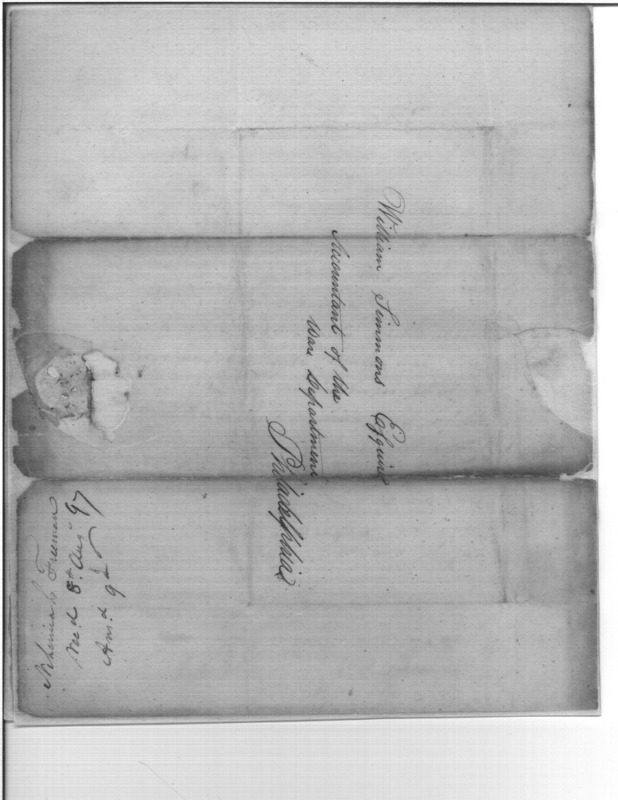 William Simmons Esquire
Accountant of the
War Department
Philadelphia
Nehemiah Freeman
Rec'd 8th Aug 97
Ans.d 9th